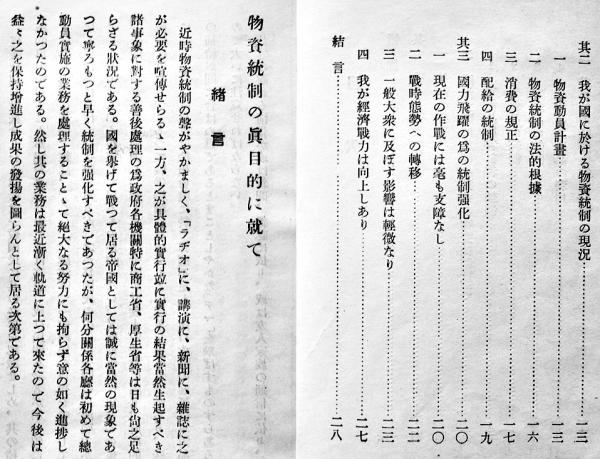 其二　我が國に於ける物資統制の現況……一三
一　物資動員計畫……一三
二　物資統制の法的根據……一六
三　消費の規正……一七
四　配給の統制……一九
其三　國力飛躍の爲の統制强化……二〇
一　現在の作戰には毫も支障なし……二〇
二　戰時態勢への轉移……二二
三　一般大衆に及ぼす影響は輕微なり……二四
四　我が經濟戰力は向上しあり……二七
結言……二八
物資統制の眞目的に就て
緖言
近時物資統制の聲がやかましく、「ラヂオ」に、講演に、新聞に、雜誌に之
が必要を宣傳せらるゝ一方、之が具體的實行竝に實行の結果當然生起すべき
諸事象に對する善後處理の爲政府各機關特に商工省、厚生省等は日も尙之足
らざる狀況である。國を擧げて戰つて居る帝國としては誠に當然の現象であ
つて寧ろもつと早く統制を强化すべきであつたが、何分關係各廳は初めて總
動員實施の業務を處理することゝて絕大なる努力にも拘らず意の如く進捗し
なかつたのである。然し其の業務は最近漸く軌道に上つて來たので今後は
益々之を保持增進し成果の發揚を圖らんとして居る次第である。